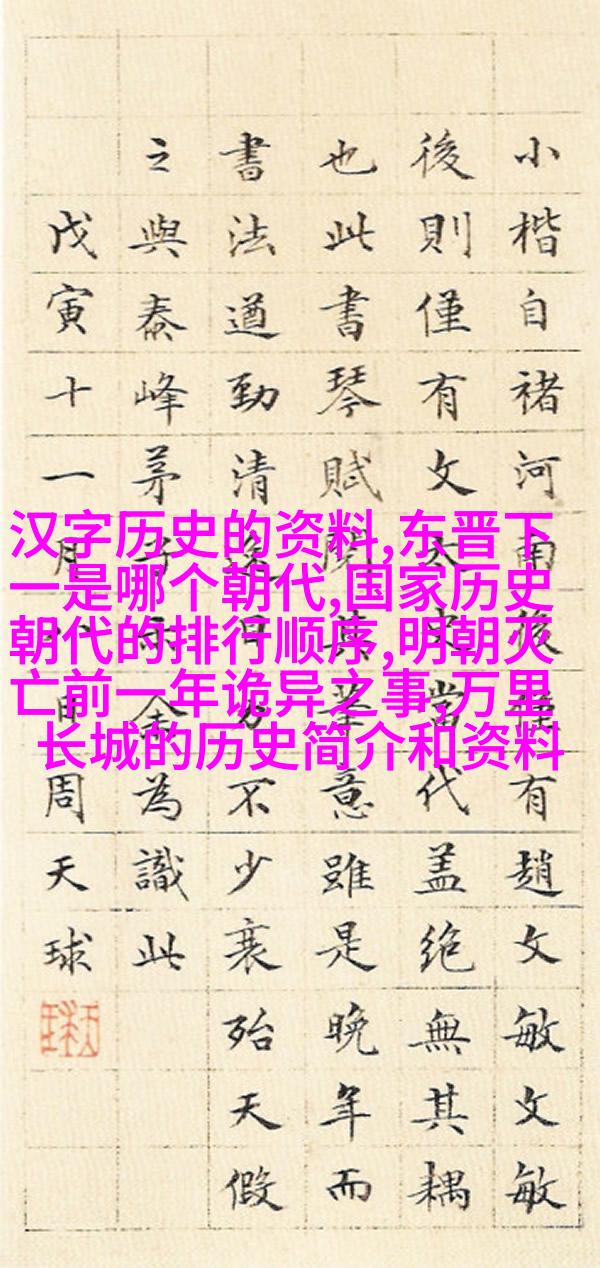 汉字历史的资料,东晋下
一是哪个朝代,国家历史
朝代的排行顺序,明朝灭
亡前一年诡异之事,万里
长城的历史简介和资料
小楷自褚河南後僅有趙文敏文敏
後則僅有文太史當代盖絶無其耦
也此書琴賦其意雖是晚年而
書法遒勁清日不少衰殆天假
之與泰峰茅子示余為識此
戊寅十一月八日周天球